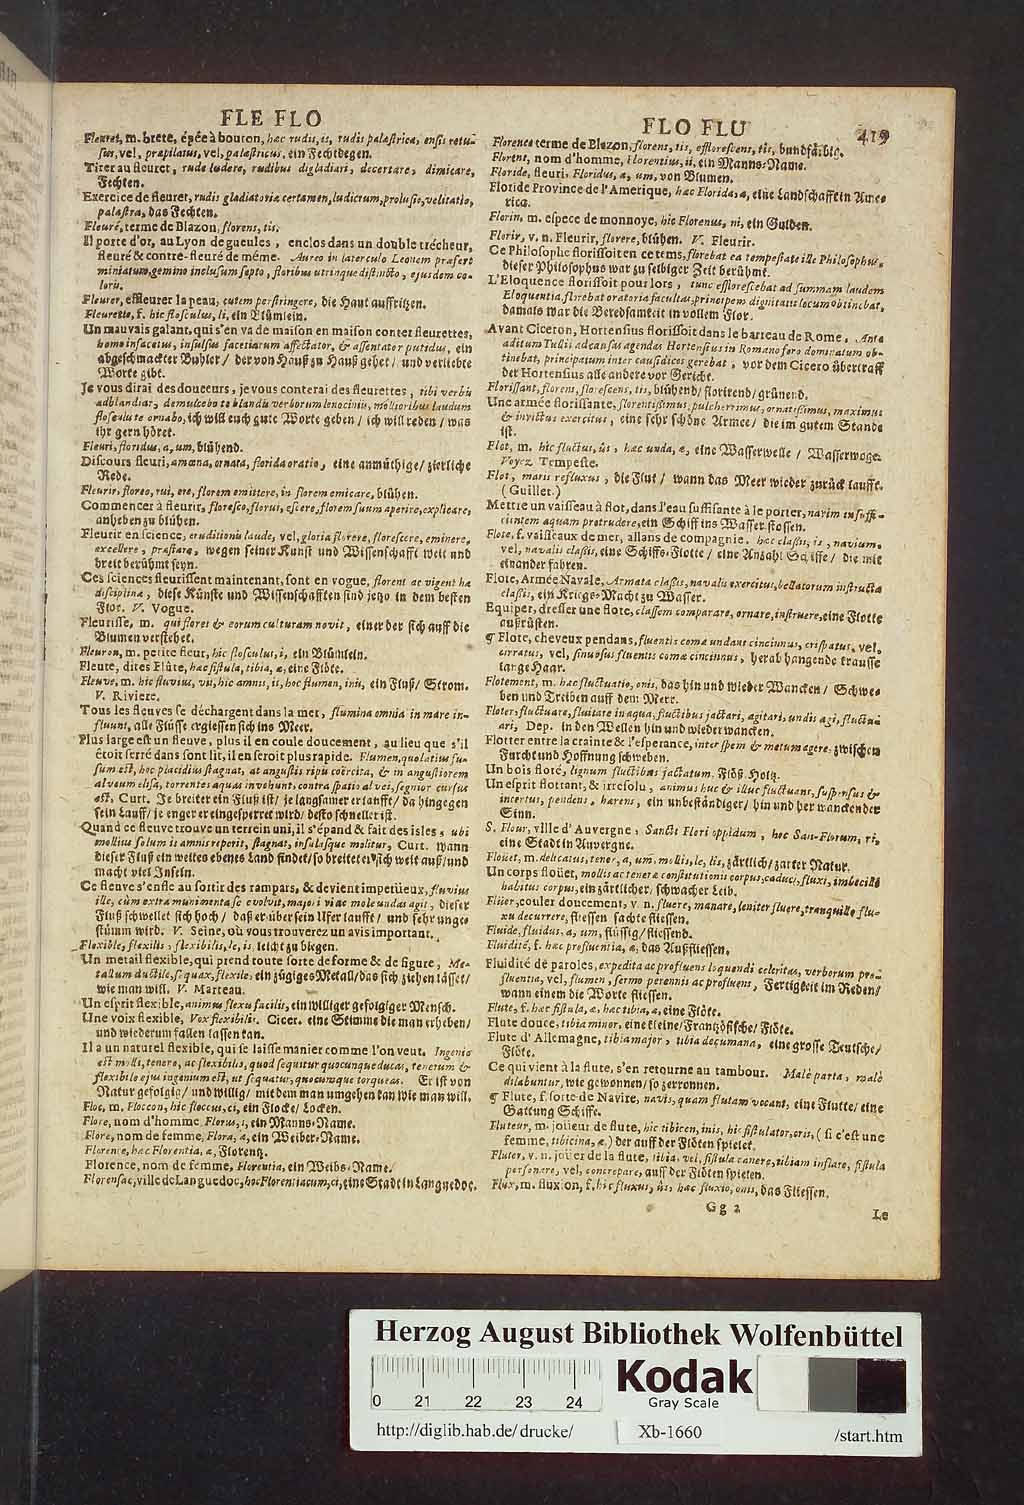 FLE FLO
Fleuret, m. brete, épée à bouton, hæc rudis, is, rudis palæstrica, ensis retu-
sus, vel, præpilatus, vel, palæstricus, ein Fechtdegen.
Titer au fleuret, rude ludere, rudibus digladiari, decertare, dimicare,
Fechten.
Exercice de fleuret, rudis gladiatoria certamen, ludicrum, prolusio, velitatio,
palæstra, das Fechten.
Fleuré, terme de Blazon, florens, tis.
Il porte d'or, au Lyon de gueules, enclos dans un double trécheur,
fleuré & contre-fleuré de méme. Aureo in laterculo Leonem præfert
miniatum, gemino inclusum septo, floribus utrinque distincto, ejusdem co-
loris.
Fleurer, effleurer la peau, cutem perstringere, die Haut auffritzen.
Fleurette, f. hic flosculus, li, ein Blümlein.
Un mauvais galant, qui s'en va de maison en maison conter fleurettes,
homo infacetus, insulsus facetiarum affectator, & assentator putidus, ein
abgeschmackter Buhler / der von Hauß zu Hauß gehet / und verliebte
Worte gibt.
Je vous dirai des douceurs, je vous conterai des fleurettes, tibi verbis
adblandiar, demulcebo te blandis verborum lenociniis, mollioribus laudum
flosculis te ornabo, ich will euch gute Worte geben / ich will reden / was
ihr gern höret.
Fleuri, floridus, a, um, blühend.
Discours fleuri, amœna, ornata, florida oratio, eine anmüthige / zierliche
Rede.
Fleurir, floreo, rui, ere, florem emittere, in florem emicare, blühen.
Commencer à fleurir, floresco, florui, escere, florem suum aperire, explicare,
anheben zu blühen.
Fleurir en science, eruditionis laude, vel, gloria florere, florescere, eminere,
excellere, præstare, wegen seiner Kunst und Wissenschafft weit und
breit berühmt seyn.
Ces sciences fleurissent maintenant, sont en vogue, florent ac vigent hæ
disciplinæ, diese Künste und Wissenschafften sind jetzo in dem besten
Flor. V. Vogue.
Fleuriste, m. qui flores & eorum culturam novit, einer der sich auff die
Blumen verstehet.
Fleuron, m. petite fleur, hic flosculus, i, ein Blümlein.
Fleute, dites Flûte, hæc fistula, tibia, æ, eine Flöte.
Fleuve, m. hic fluvius, vii, hic amnis, is, hoc flumen, inis, ein Fluß / Strom.
V. Riviere.
Tous les fleuves se déchargent dans la mer, flumina omnia in mare in-
fluunt, alle Flüsse ergiessen sich ins Meer.
Plus large est un fleuve, plus il en coule doucement, au lieu que s'il
étoit serré dans son lit, il en seroit plus rapide. Flumen, quo latius fu-
sum est, hoc placidius stagnat, at angustis ripis coërcita, & in angustiorem
alveum elisa, torrentes aquas invehunt, contra spatio alvei, segnior cursus
est, Curt. Je breiter ein Fluß ist / je langsamer er laufft / da hingegen
sein Lauff / je enger er eingesperret wird / desto schneller ist.
Quand ce fleuve trouve un terrein uni, il s'épand & fait des isles, ubi
mollius solum is amnis reperit, stagnat, insulasque molitur, Curt. wann
dieser Fluß ein weites ebenes Land findet / so breitet er sich weit auß / und
macht viel Inseln.
Ce fleuve s'enfle au sortir des rampars, & devient impetüeux, fluvius
ille, cùm extra munimenta se evolvit, majori vi ac mole undas agit, dieser
Fluß schwellet sich hoch / daß er über sein Ufer laufft / und sehr unge-
stümm wird. V. Seine, où vous trouverez un avis important.
Flexible, flexilis, flexibilis, le, is, leicht zu biegen.
Un metail flexible, qui prend toute sorte de forme & de figure, Me-
tallum ductile, sequax, flexile, ein zügiges Metall / das sich ziehen lässet /
wie man will. V. Marteau.
Un esprit flexible, animus flexu facilis, ein williger gefolgiger Mensch.
Une voix flexible, Vox flexibilis. Cicer. eine Stimme die man erheben /
und wiederum fallen lassen kan.
Il a un naturel flexible, qui se laisse manier comme l'on veut. Ingenio
est molli, tenero, ac flexibilis, quod sequitur quocunque ducas, tenerum &
flexibile ejus ingenium est, ut sequatur, quocumque torqueas. Er ist von
Natur gefolgig / und willig / mit dem man umgehen kan wie man will.
Floc, m. Floccon, hic floccus, ci, ein Flocke / Locken.
Flore, nom d'homme, Florus, i, ein Manns-Name.
Flore, nom de femme, Flora, æ, ein Weiber-Name.
Florence, hæc Florentia, æ, Florentz.
Florence, nom de femme, Florentia, ein Weibs-Name.
Florensac, ville de Languedoc, hoc Florentiacum, ci, eine Stadt in Languedoc.
FLO FLU 419
Florence terme de Blezon, florens, tis, efflorescens, tis, buntfärbig.
Florent, nom d'homme, Florentius, ii, ein Manns-Name.
Floride, fleuri, Floridus, a, um, von Blumen.
Floride Province de l'Amerique, hæc Florida, æ, eine Landschafft in Ame-
rica.
Florin, m. espece de monnoye, hic Florenus, ni, ein Gulden.
Florir, v. n. Fleurir, florere, blühen. V. Fleurir.
Ce Philosophe florissoit en ce tems, florebat ea tempestate ille Philosophus,
dieser Philosophus war zu selbiger Zeit berühmt.
L'Eloquence florissoit pour lors, tunc efflorescebat ad summam laudem
Eloquentia, florebat oratoria facultas, principem dignitatis locum obtinebat,
damals war die Beredsamkeit in vollem Flor.
Avant Ciceron, Hortensius florissoit dans le bareau de Rome, Ante
aditum Tullii ad causas agendas Hortensius in Romano foro dominatum ob-
tinebat, principatum inter causidicos gerebat, vor dem Cicero übertraff
der Hortensius alle andere vor Gericht.
Florissant, florens, florescens, tis, blühend / florirend / grünend.
Une armée florissante, florentissimus, pulcherrimus, ornatissimus, maximus
& invictus exercitus, eine sehr schöne Armee / die im gutem Stande
ist.
Flot, m. hic fluctus, ûs, hæc unda, æ, eine Wasserwelle / Wasserwoge.
Voyez Tempeste.
Flot, maris refluxus, die Flut / wann das Meer wieder zurück laufft.
(Guillet.)
Mettre un vaisseau à flot, dans l'eau suffisante à le porter, navim in suffi-
cientem aquam protrudere, ein Schiff ins Wasser stossen.
Flote, f. vaisseaux de mer, allans de compagnie, hæc classis, is, navium,
vel, navalis classis, eine Schiffs-Flotte / eine Anzahl Schiffe / die mit
einander fahren.
Flote, Armée Navale, Armata classis, navalis exercitus, bellatorum instructa
classis, ein Kriegs-Macht zu Wasser.
Equiper, dresser une flote, classem comparare, ornare, instruere, eine Flotte
außrüsten.
¶ Flote, cheveux pendans, fluentis comæ undans cincinnus, crispatus, vel,
cirratus, vel, sinuosus fluentis comæ cincinnus, herab hangende krausse
lange Haar.
Flotement, m. hæc fluctuatio, onis, das hin und wieder Wancken / Schwe-
ben und Treiben auff dem Meer.
Floter, fluctuare, fluitare in aqua, fluctibus jactari, agitari, undis agi, fluctu-
ari, Dep. in den Wellen hin und wieder wancken.
Flotter entre la crainte & l'esperance, inter spem & metum agere, zwischen
Furcht und Hoffnung schweben.
Un bois floté, lignum fluctibus jactatum. Flöß-Holtz.
Un esprit flottant, & irresolu, animus huc & illuc fluctuans, suspensus &
incertus, pendens, hærens, ein unbeständiger / hin und her wanckender
Sinn.
S. Flour, ville d'Auvergne, Sancti Flori oppidum, hoc San-Florum, ri,
eine Stadt in Auvergne.
Floüet, m. delicatus, tener, a, um, mollis, le, lis, zärtlich / zarter Natur.
Un corps floüet, mollis ac teneræ constitutionis corpus, caduci, fluxi, imbecilli
habitus corpus, ein zärtlicher / schwacher Leib.
Flüer, couler doucement, v. n. fluere, manare, leniter fluere, tranquillo flu-
xu decurrere, fliessen, sachte fliessen.
Fluide, fluidus, a, um, flüssig / fliessend.
Fluidité, f. hæc profluentia, æ, das Außfliessen.
Fluidité de paroles, expedita ac profluens loquendi celeritas, verborum pro-
fluentia, vel, flumen, sermo perennis ac profluens, Fertigkeit im Reden /
wann einem die Worte fliessen.
Flute, f. hæc fistula, æ, hæc tibia, æ, eine Flöte.
Flute douce, tibia minor, eine kleine / Frantzösische / Flöte.
Flute d'Allemagne, tibia major, tibia decumana, eine grosse Teutsche /
Flöte.
Ce qui vient à la flute, s'en retourne au tambour. Malè parta, malè
dilabuntur, wie gewonnen / so zerronnen.
¶ Flute, f. sorte de Navire, navis, quam flutam vocant, eine Flutte / eine
Gattung Schiffe.
Fluteur, m. joüeur de flute, hic tibicen, inis, hic fistulator, oris, (si c'est une
femme, tibicina, æ) der auff der Flöten spielet.
Fluter, v. n. joüer de la flute, tibia, vel, fistula canere, tibiam inflare, fistula
personare, vel, concrepare, auff der Flöten spielen.
Flux, m. fluxion, f. hic fluxus, ûs, hæc fluxio, onis, das Fliessen.
Gg 2
Le
Herzog August Bibliothek Wolfenbüttel
0 21 22 23 24
Kodak
Gray Scale
http://diglib.hab.de/drucke/
Xb-1660
/start.htm